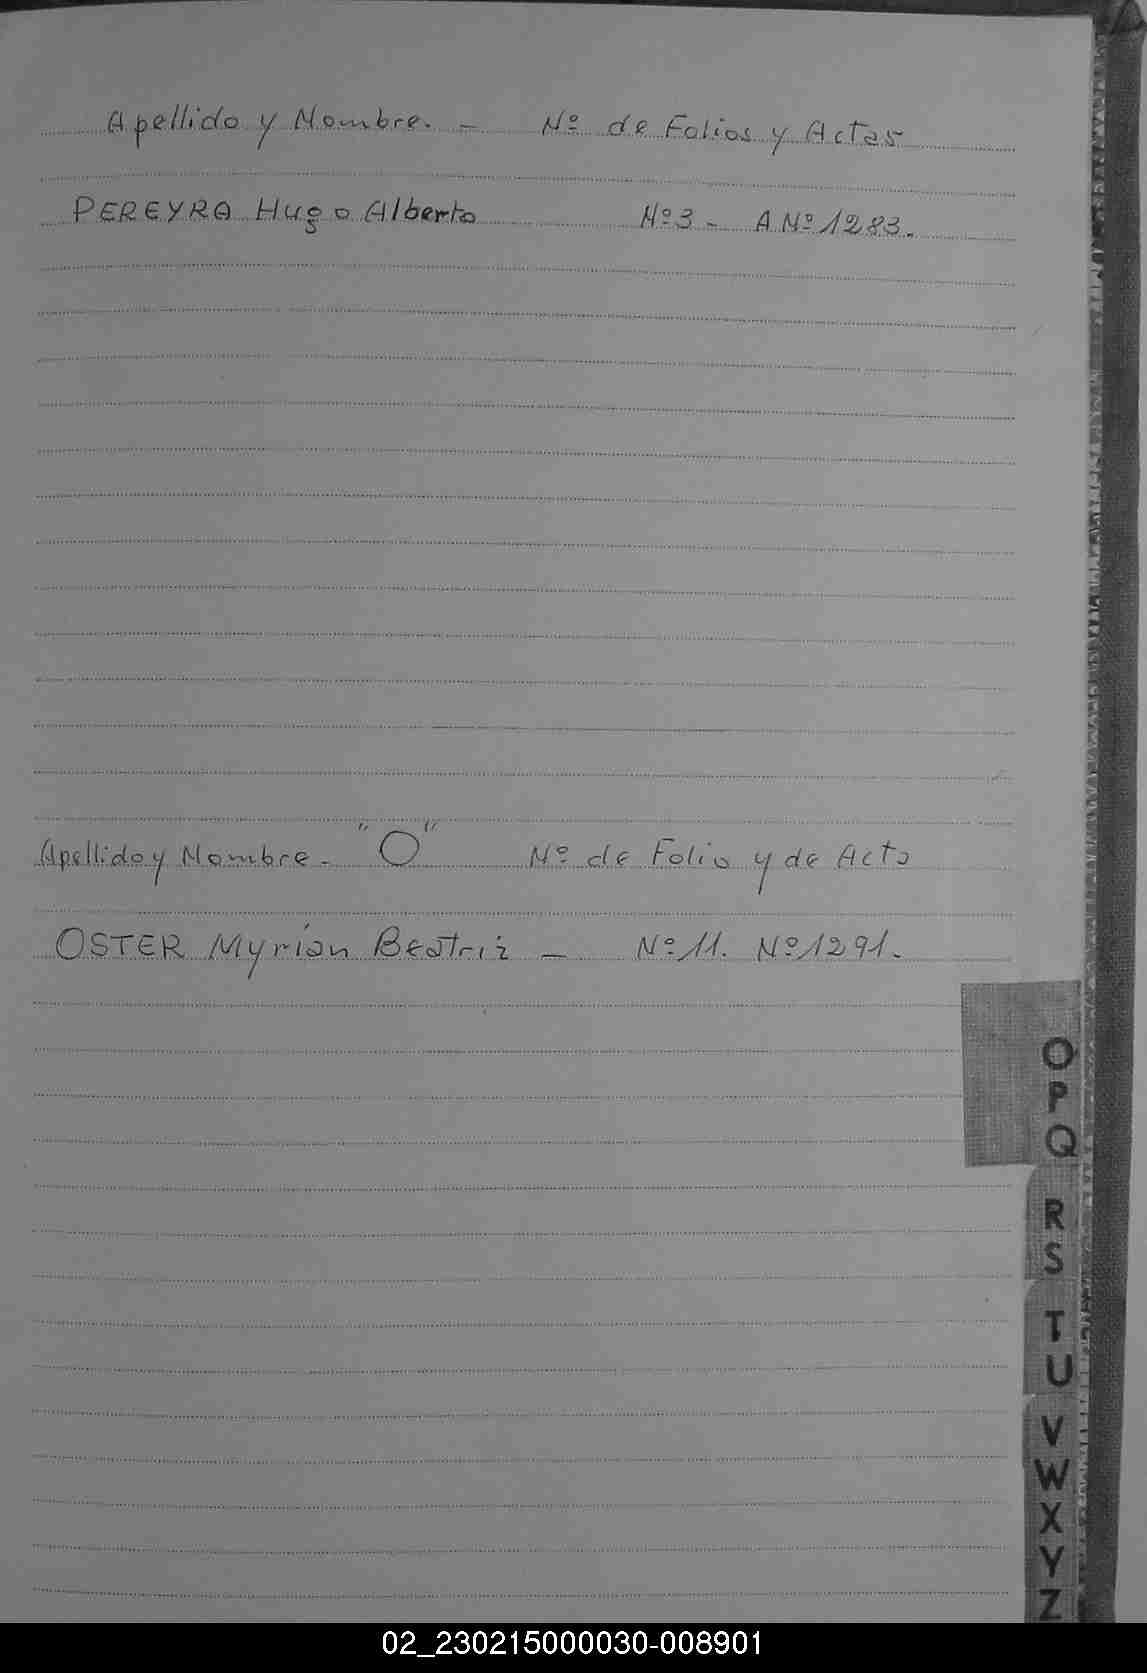 Apellido y Nombre. - Nº de Folios y Actas
PEREYRA Hugo Alberto Nº3 - A Nº 1283.
Apellido y Nombre. "O" Nº de Folio y de Acta
OSTER Myrian Beatriz - Nº 11. Nº 1291.
O
P
Q
R
S
T
U
V
W
X
Y
Z
02_230215000030-008901